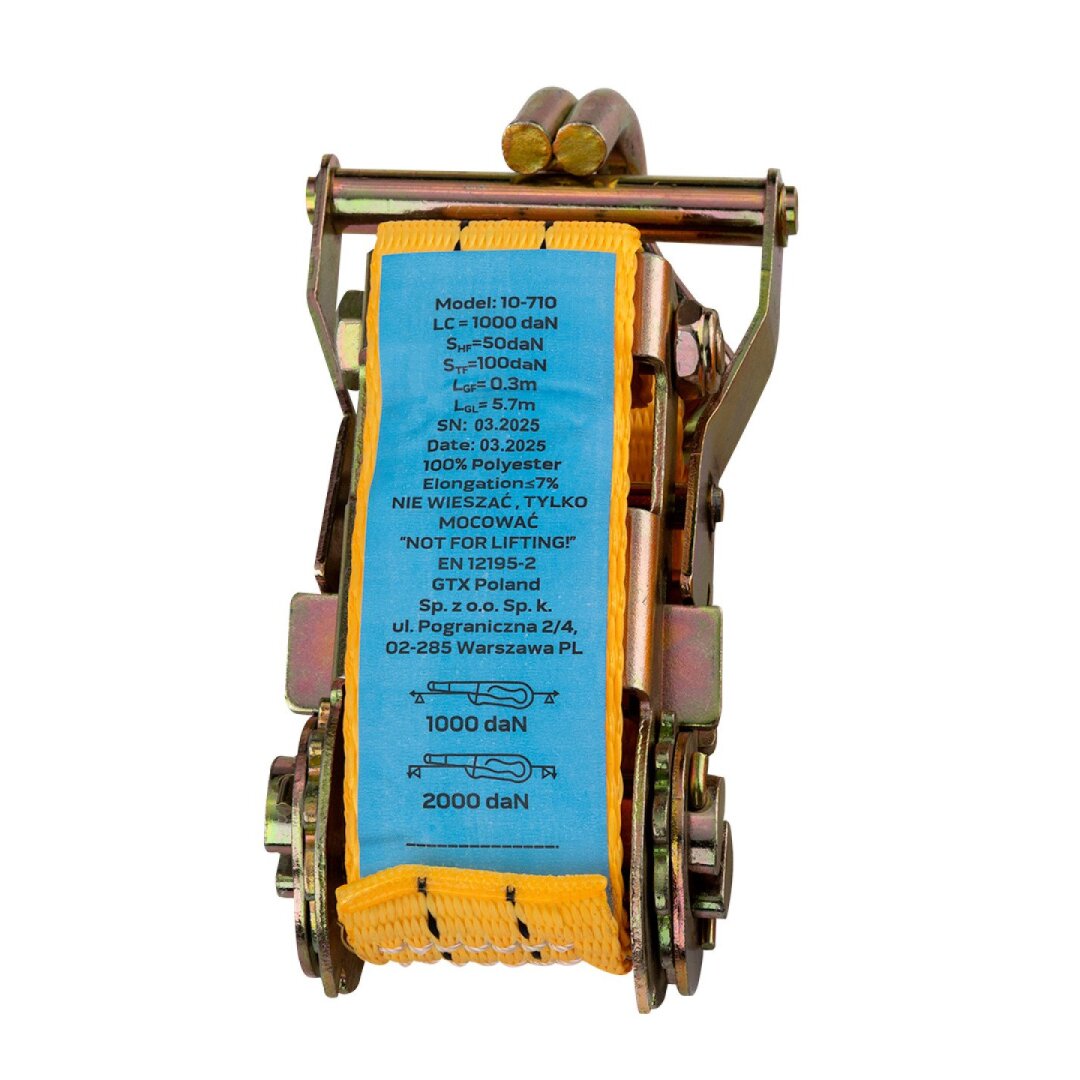 Model: 10-710
LC = 1000 daN
SHF=50daN
STF=100daN
LGF= 0.3m
LGL= 5.7m
SN: 03.2025
Date: 03.2025
100% Polyester
Elongation≤7%
NIE WIESZAĆ , TYLKO
MOCOWAĆ
"NOT FOR LIFTING!"
EN 12195-2
GTX Poland
Sp. z o.o. Sp. k.
ul. Pograniczna 2/4,
02-285 Warszawa PL
1000 daN
2000 daN